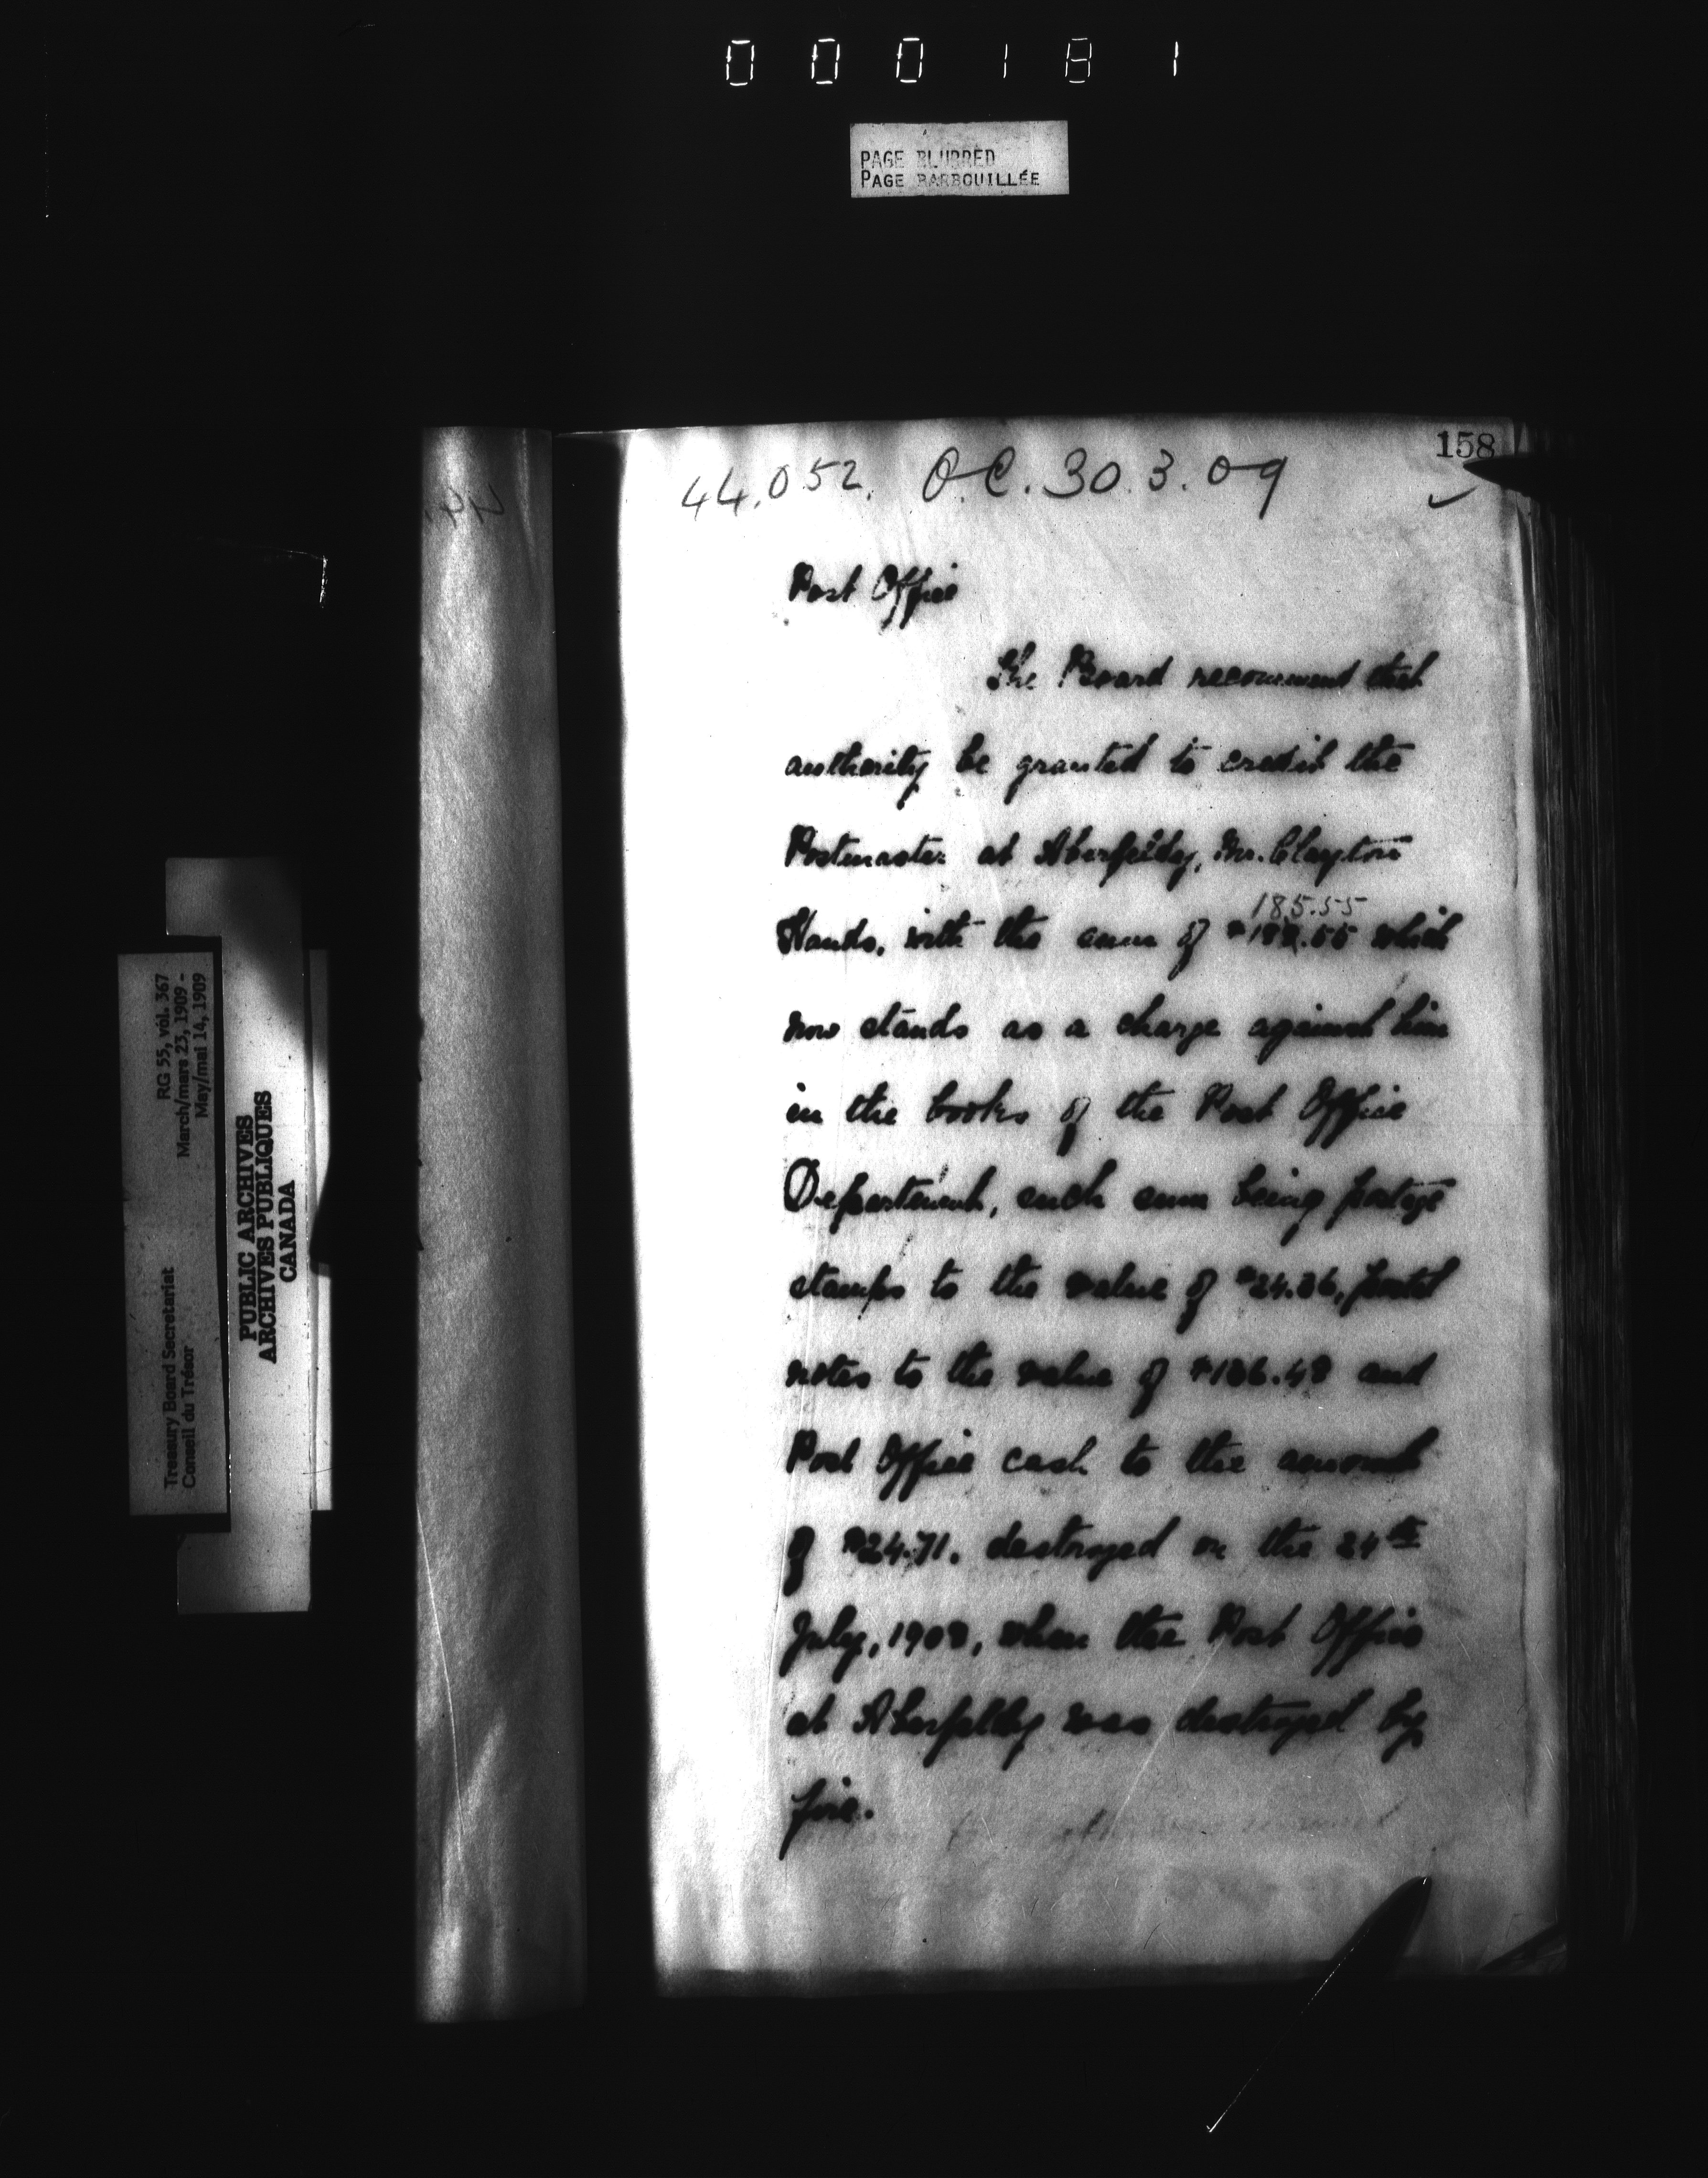 000181
PAGE BLURRED
PAGE BARBOUILLÉE
158
44.052. O.C. 30.3.09
Post Office
The Board recommend that
authority be granted to credit the
Postmaster at Aberfeldy, Mr. Clayton
185.55
Hands, with the sum of $ which
now stands as a charge against him
in the books of the Post Office
Department, such sum being postage
stamps to the value of $24.36, postal
notes to the value of $136.48 and
Post Office cash to the amount
of $24.71, destroyed on the 24th
July, 1908, when the Post Office
at Aberfeldy was destroyed by
fire.
RG 55, vol. 367
March/mars 23, 1909 -
May/mai 14, 1909
Treasury Board Secretariat
Conseil du Trésor
PUBLIC ARCHIVES
ARCHIVES PUBLIQUES
CANADA